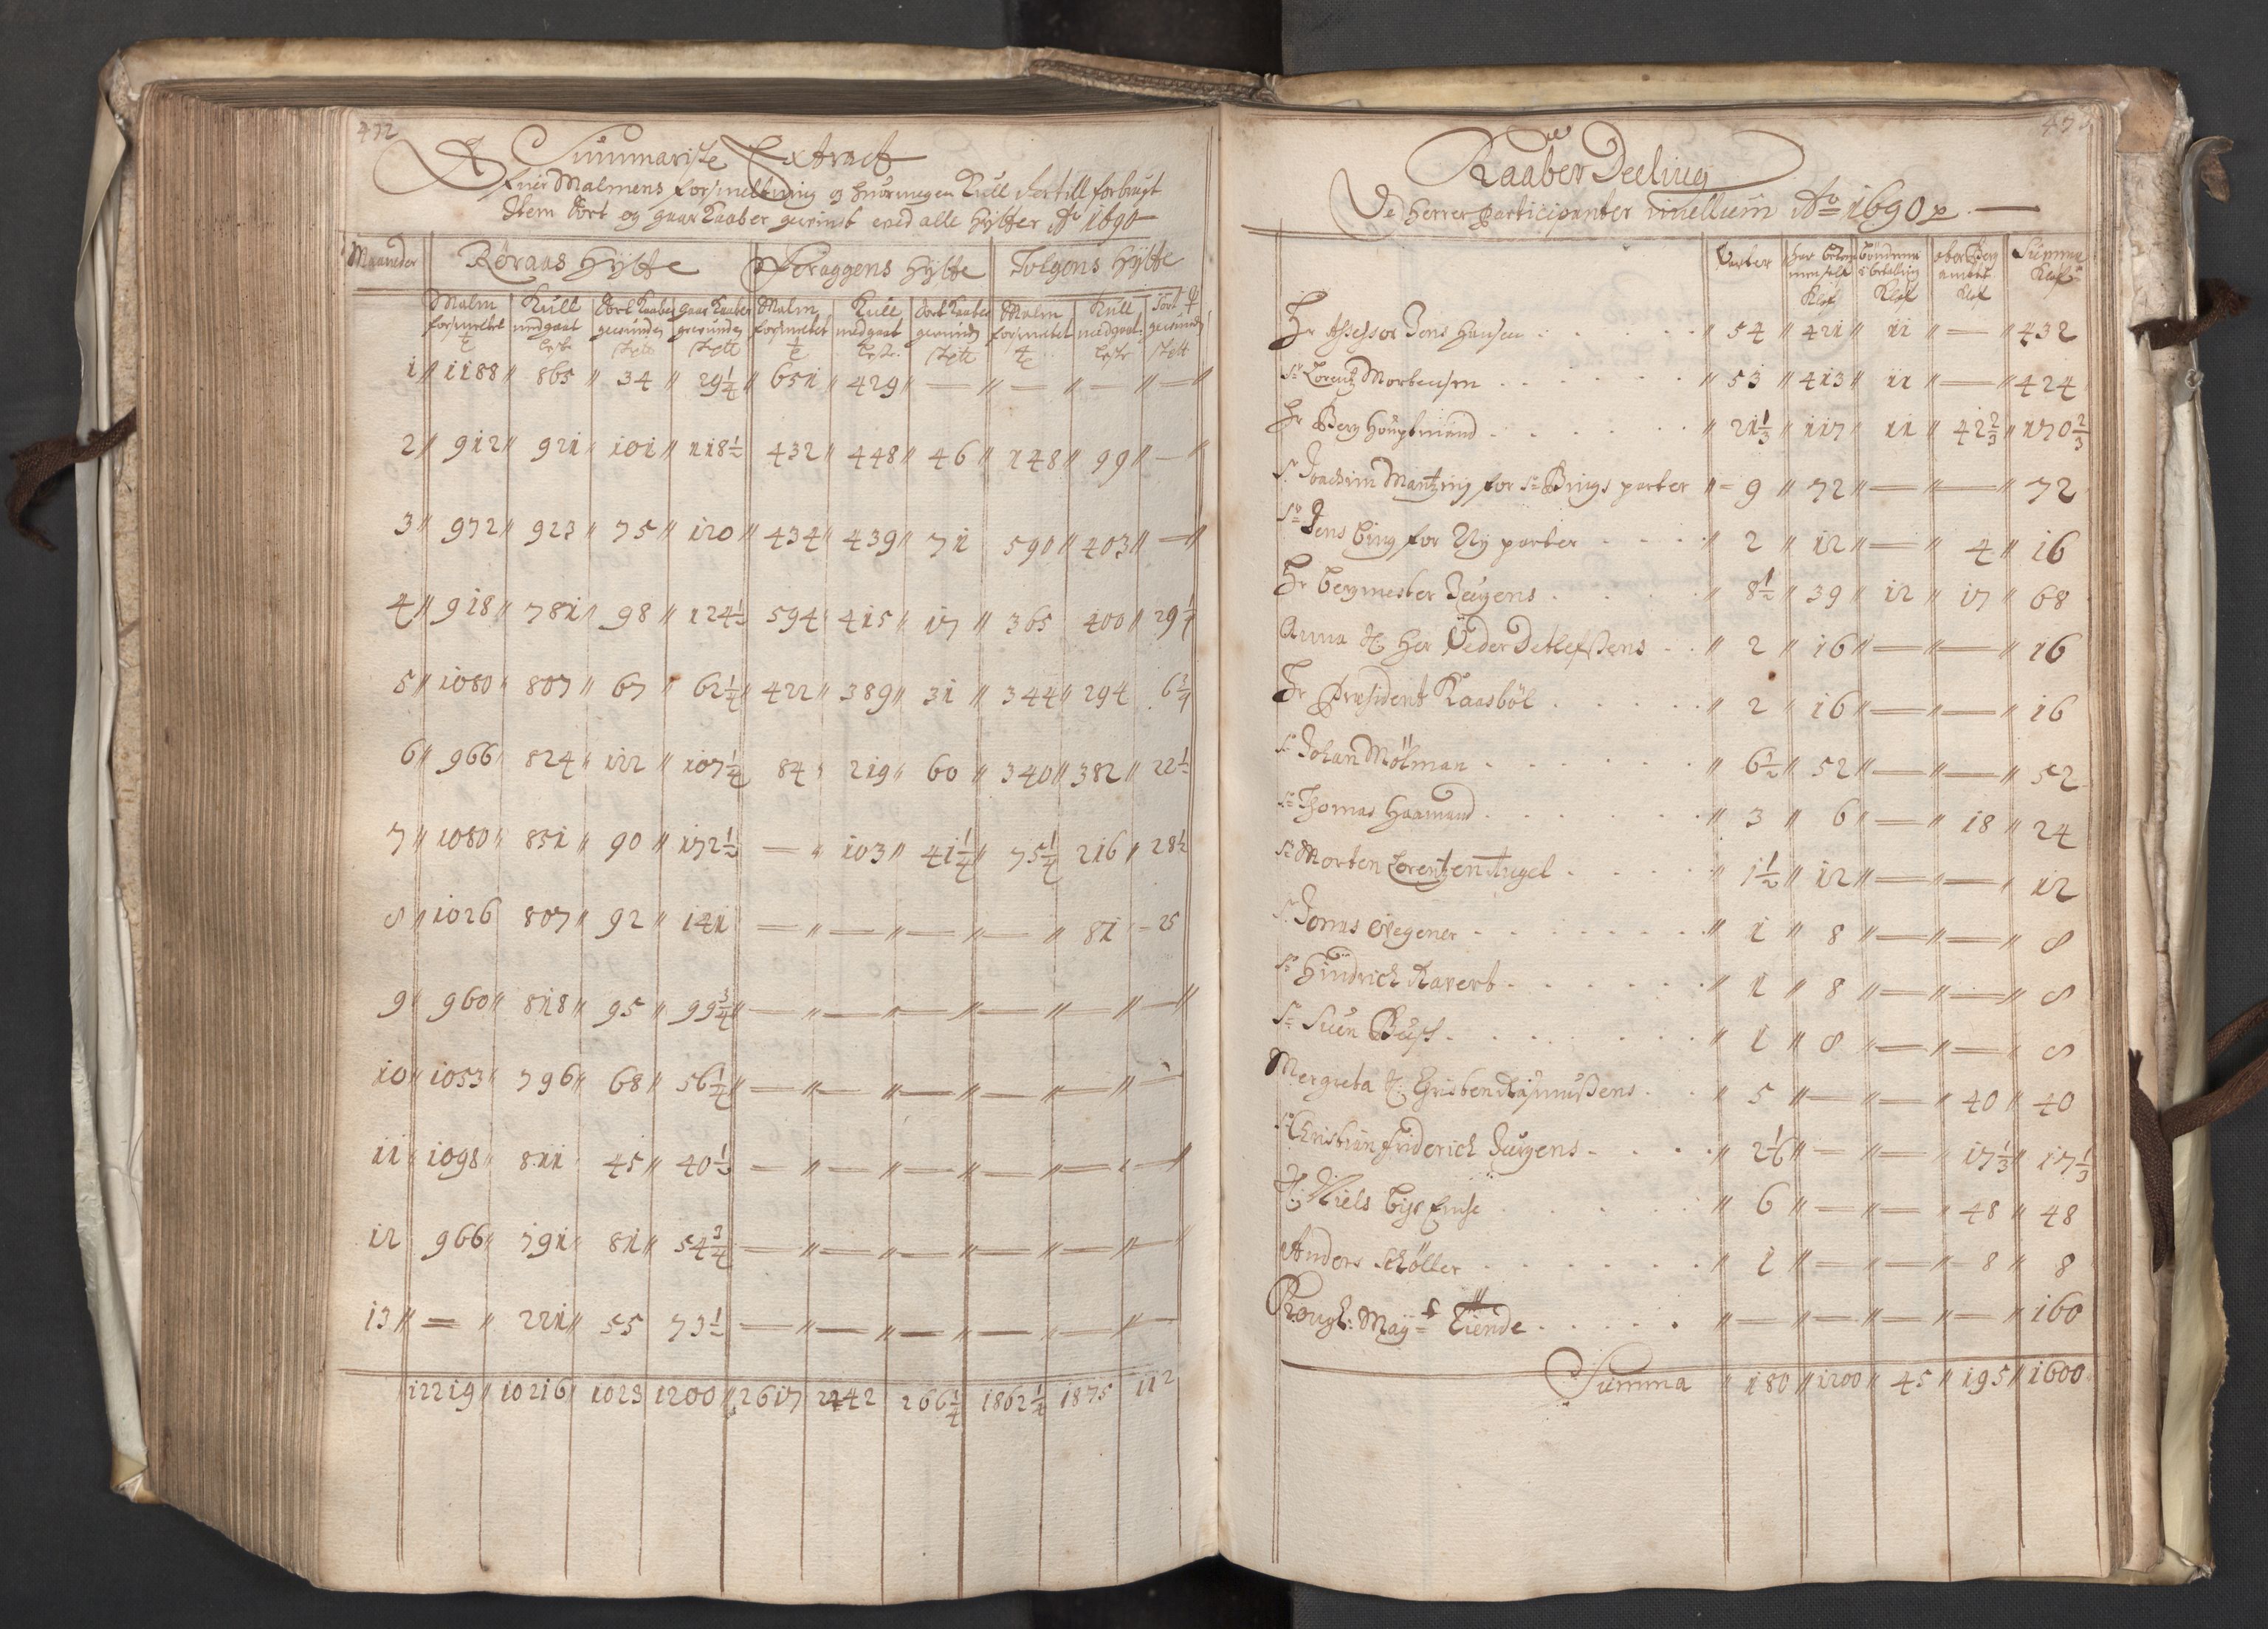 472
Summariste Extract
Malmens forsmeltning og huormegen Kull dertill forbrugt
Item Sort og gaar Kaaber gevindt ved alle Hytter Ao 1690
Maaneder Röraas Hytte Dragaagens Hytte Tolgens Hytte
Malm Kull Sort Kaaber gaar Kaaber Malm Kull Sort Kaaber Malm Kull Sort
forsmeltet medgaat gevunden gevunden forsmeltet medgaat gevunden forsmeltet medgaat gevunden
1 1188 865 34 29 1/4 651 429 — — — —
2 912 921 101 118 1/2 432 448 46 148 99 —
3 972 923 75 120 434 439 71 590 403 —
4 918 781 98 124 1/2 594 415 17 365 400 29 1/4
5 1080 807 67 62 1/4 422 389 31 344 294 6 3/4
6 966 824 122 107 1/4 84 219 60 340 382 22 1/2
7 1080 851 90 172 1/2 — 103 41 1/4 75 1/4 216 28 1/2
8 1026 807 92 141 — — — — 81 25
9 960 818 95 99 3/4 — — — — — —
10 1053 796 68 56 1/4 — — — — — —
11 1098 811 45 40 1/2 — — — — — —
12 966 791 81 54 3/4 — — — — — —
13 — 221 55 73 1/2 — — — — — —
12219 10216 1023 1200 2617 2442 266 1/4 1862 1/4 1875 112
Kaaber Deeling
De Herrer Participanter imellum Ao 1690
Parter bönderne i betaling ober Berg ambtet Summa
Hr Assessor Jens Hansen 54 421 11 — 432
Sr Lorentz Mortensen 53 413 11 — 424
Hr Berg Houptmand 21 1/3 117 11 42 2/3 170 2/3
Sr Joachim Mantzing for Sr Bings parter 9 72 — — 72
Sr Jens Bing for Ny parter 2 12 — 4 16
Hr Bergmester Jürgens 8 1/2 39 12 17 68
Anna Sl. Her Peder Detlefsens 2 16 — — 16
Hr Præsident Kaasböl 2 16 — — 16
Sr Johan Mölman 6 1/2 52 — — 52
Sr Thomas Hammand 3 6 — 18 24
Sr Morten Lorentzen Angel 1 1/2 12 — — 12
Sr Jonas Wegener 1 8 — — 8
Sr Hindrich Kavert 1 8 — — 8
Sr Suen Busch 1 8 — — 8
Mergreta Sl. Christen Rasmusens 5 — — 40 40
Sr Christian Friderich Jürgens 2 1/6 — — 17 1/3 17 1/3
Niels 6 — — 48 48
Anders Schöller 1 — — 8 8
Kongl: Maytt Tiende — — — — 160
Summa 180 1200 45 195 1600